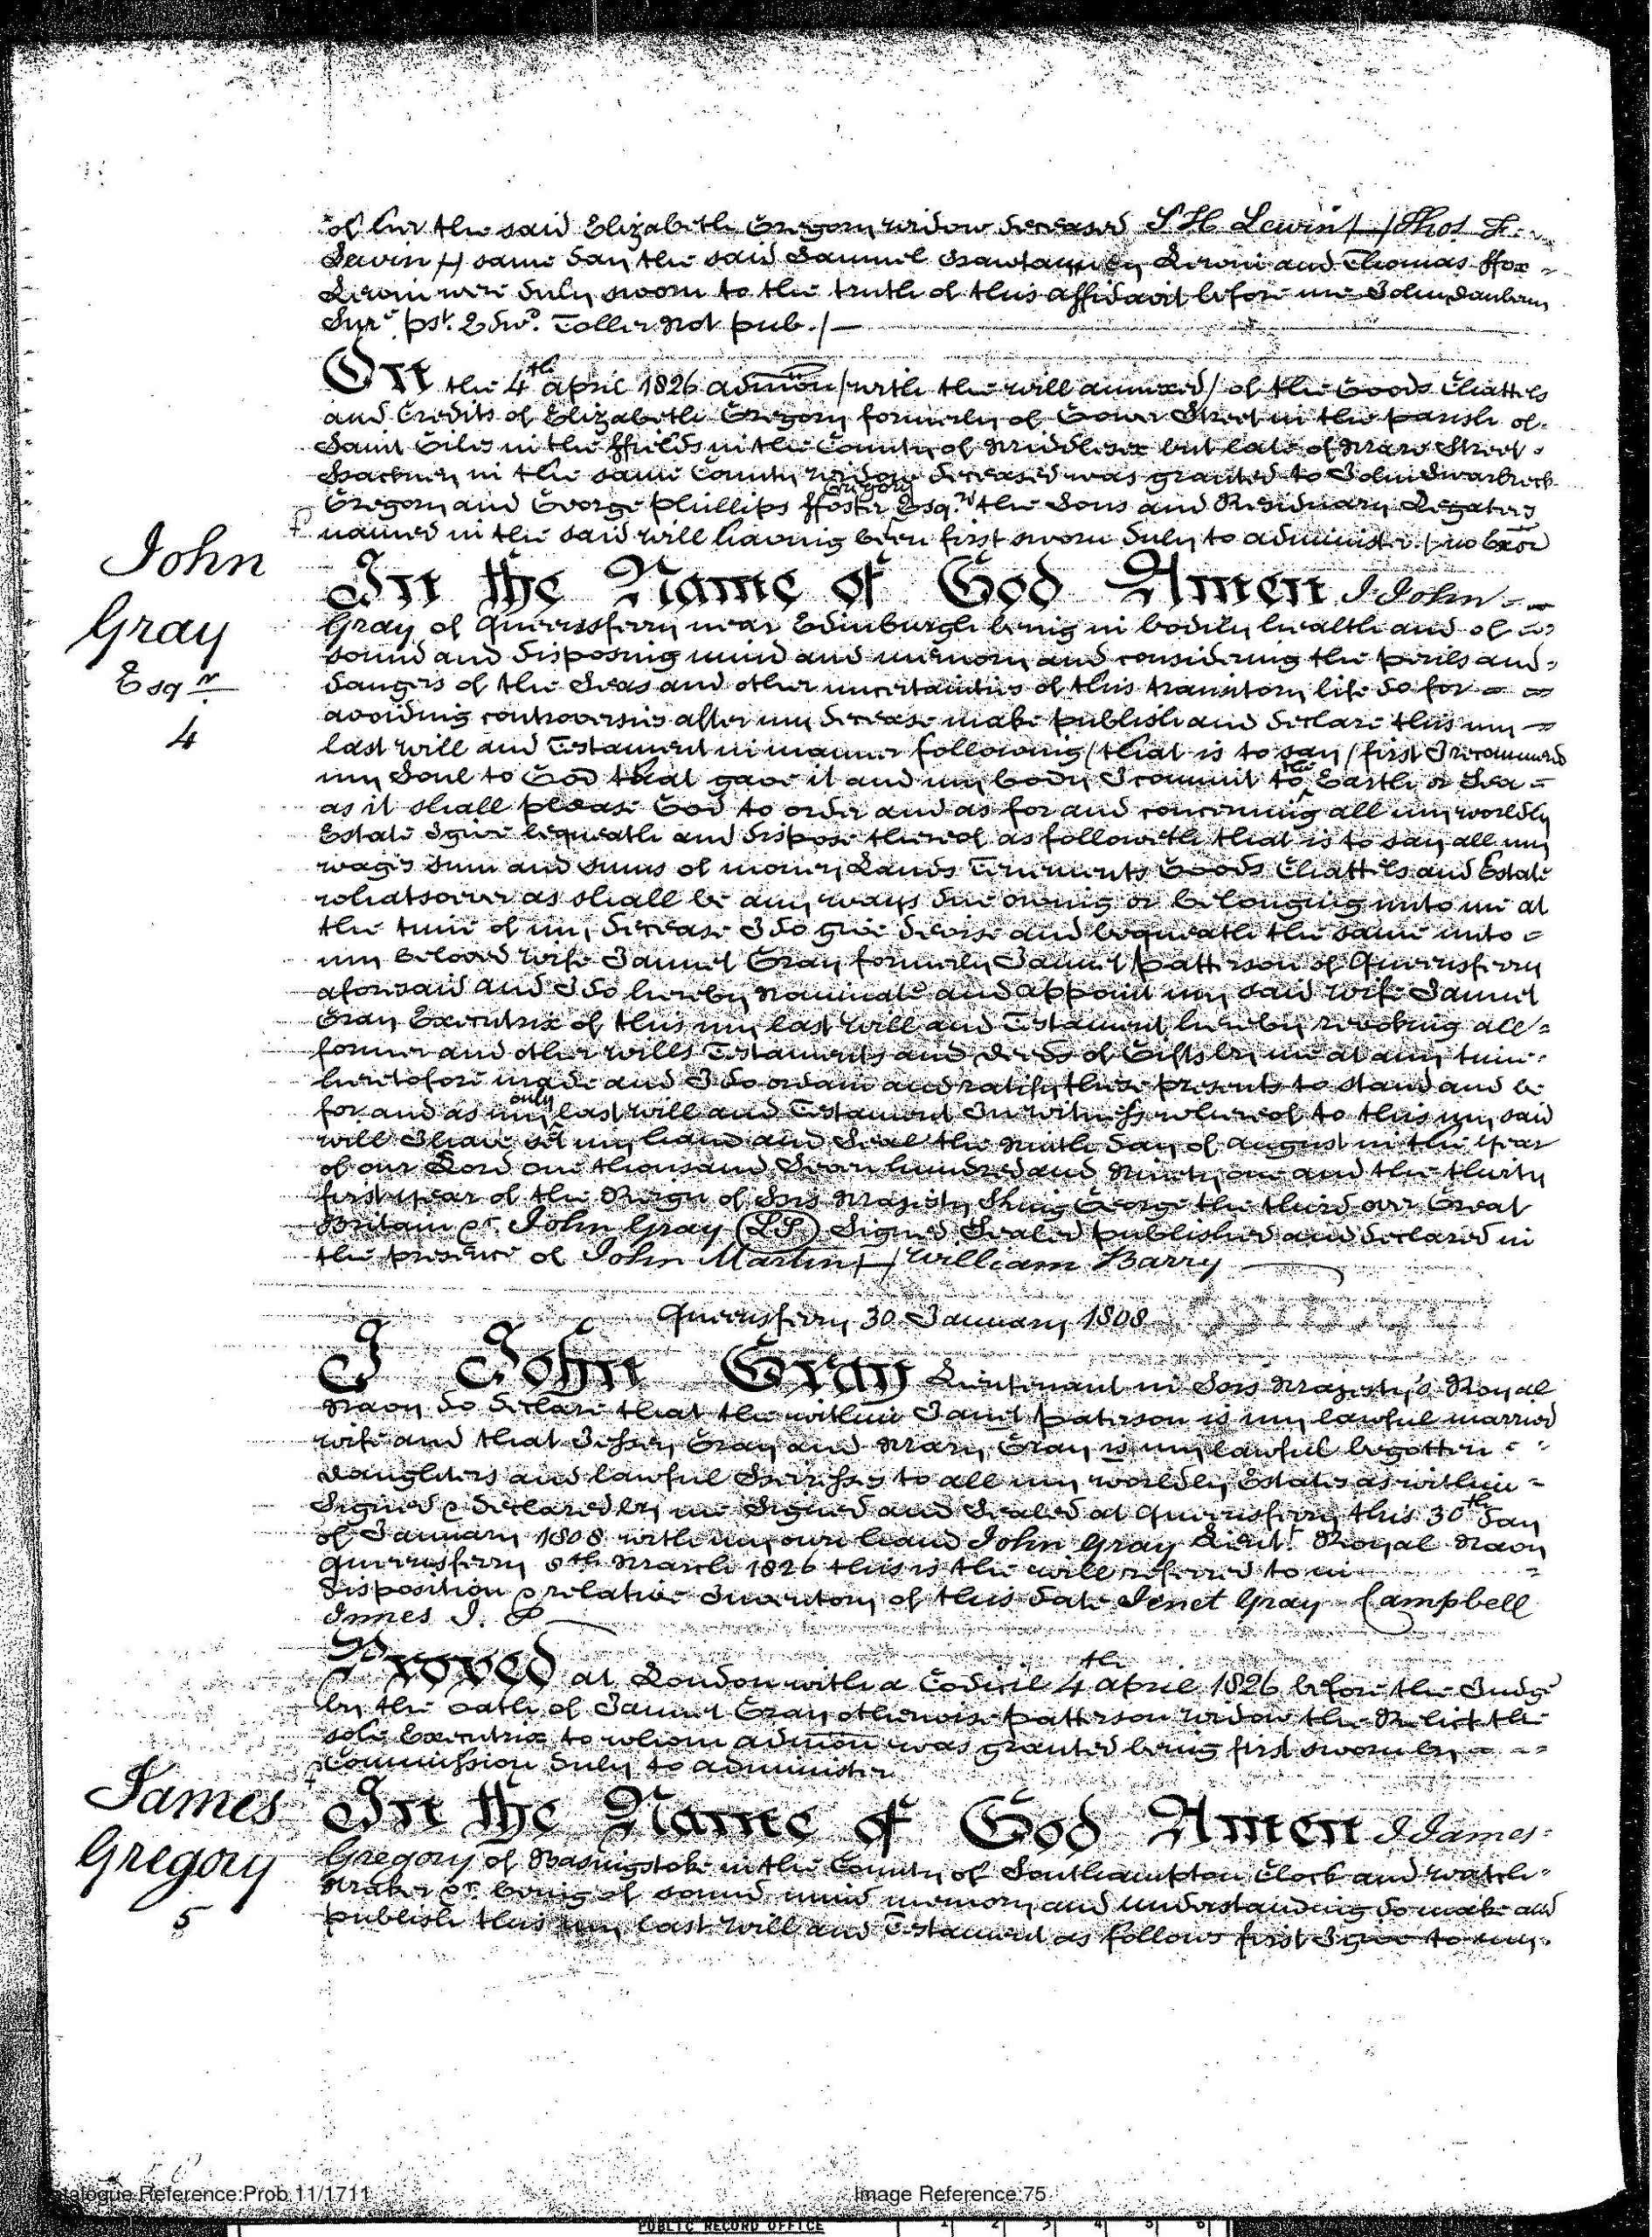 of her the said Elizabeth Gregory widow deceased S H Lewin / Thos F
Lewin / same day the said Samuel Hawtayne Lewin and Thomas ffox
Lewin were duly sworn to the truth of this affidavit before me John Daubeny
Surr. pst. Edwd. Toller Not pub. /
On the 4th april 1826 admon / with the will annexed / of the Goods Chattels
and Credits of Elizabeth Gregory formerly of Gower Street in the parish of
Saint Giles in the ffields in the County of Middlesex but late of Mare Street
Hackney in the same County widow deceased was granted to John Swarbreck
Gregory and George Phillips ffoster Gregory Esqrs. the Sons and Residuary Legatees
named in the said will having been first sworn duly to administer / no Exor
John
Gray
Esqr
4
In the Name of God Amen I John
Gray of Queensferry near Edinburgh being in bodily health and of
sound and disposing mind and memory and considering the perils and
dangers of the Seas and other uncertainties of this transitory life do for
avoiding controversies after my decease make publish and declare this my
last will and Testament in manner following / that is to say / first I recommend
my Soul to God that gave it and my body I commit to the Earth or Sea
as it shall please God to order and as for and concerning all my worldly
Estate I give bequeath and dispose thereof as followeth that is to say all my
wages Sum and Sums of money Lands Tenements Goods Chattels and Estate
whatsoever as shall be any ways due owing or belonging unto me at
the time of my decease I do give devise and bequeath the same unto
my beloved wife Jannet Gray formerly Jannet Patterson of Queensferry
aforesaid and I do hereby nominate and appoint my said wife Jannet
Gray Executrix of this my last will and Testament hereby revoking all
former and other wills Testaments and deeds of Gifts by me at any time
heretofore made and I do ordain and ratify these presents to stand and be
for and as my only last will and Testament In witness whereof to this my said
will I have set my hand and Seal the Ninth day of august in the year
of our Lord one thousand Seven hundred and Ninety one and the thirty
first year of the Reign of His Majesty King George the third over Great
Britain &c. John Gray (LS) Signed Sealed published and declared in
the presence of John Martin / William Barry
Queensferry 30 January 1808
I John Gray Lieutenant in His Majesty's Royal
Navy do declare that the within Janet Paterson is my lawful married
wife and that Jessey Gray and Mary Gray is my lawful begotten
Daughters and lawful Heiresses to all my worldly Estates as within
Signed & declared by me Signed and Sealed at Queensferry this 30th Day
of January 1808 with my own hand John Gray Lieut. Royal Navy
Queensferry 8th March 1826 this is the will referred to in
disposition & relative Inventory of this date Jenet Gray Campbell
Innes J. P
Proved at London with a Codicil 4th april 1826 before the Judge
by the oath of Jannet Gray otherwise Patterson widow the Relict the
sole Executrix to whom admon was granted being first sworn by
Commission duly to administer
James
Gregory
5
In the Name of God Amen I James
Gregory of Basingstoke in the County of Southampton Clock and watch
Maker &c. being of sound mind memory and understanding do make and
publish this my last will and Testament as follows first I give to my
Catalogue Reference:Prob 11/1711
Image Reference:75
PUBLIC RECORD OFFICE
1 2 3 4 5 6